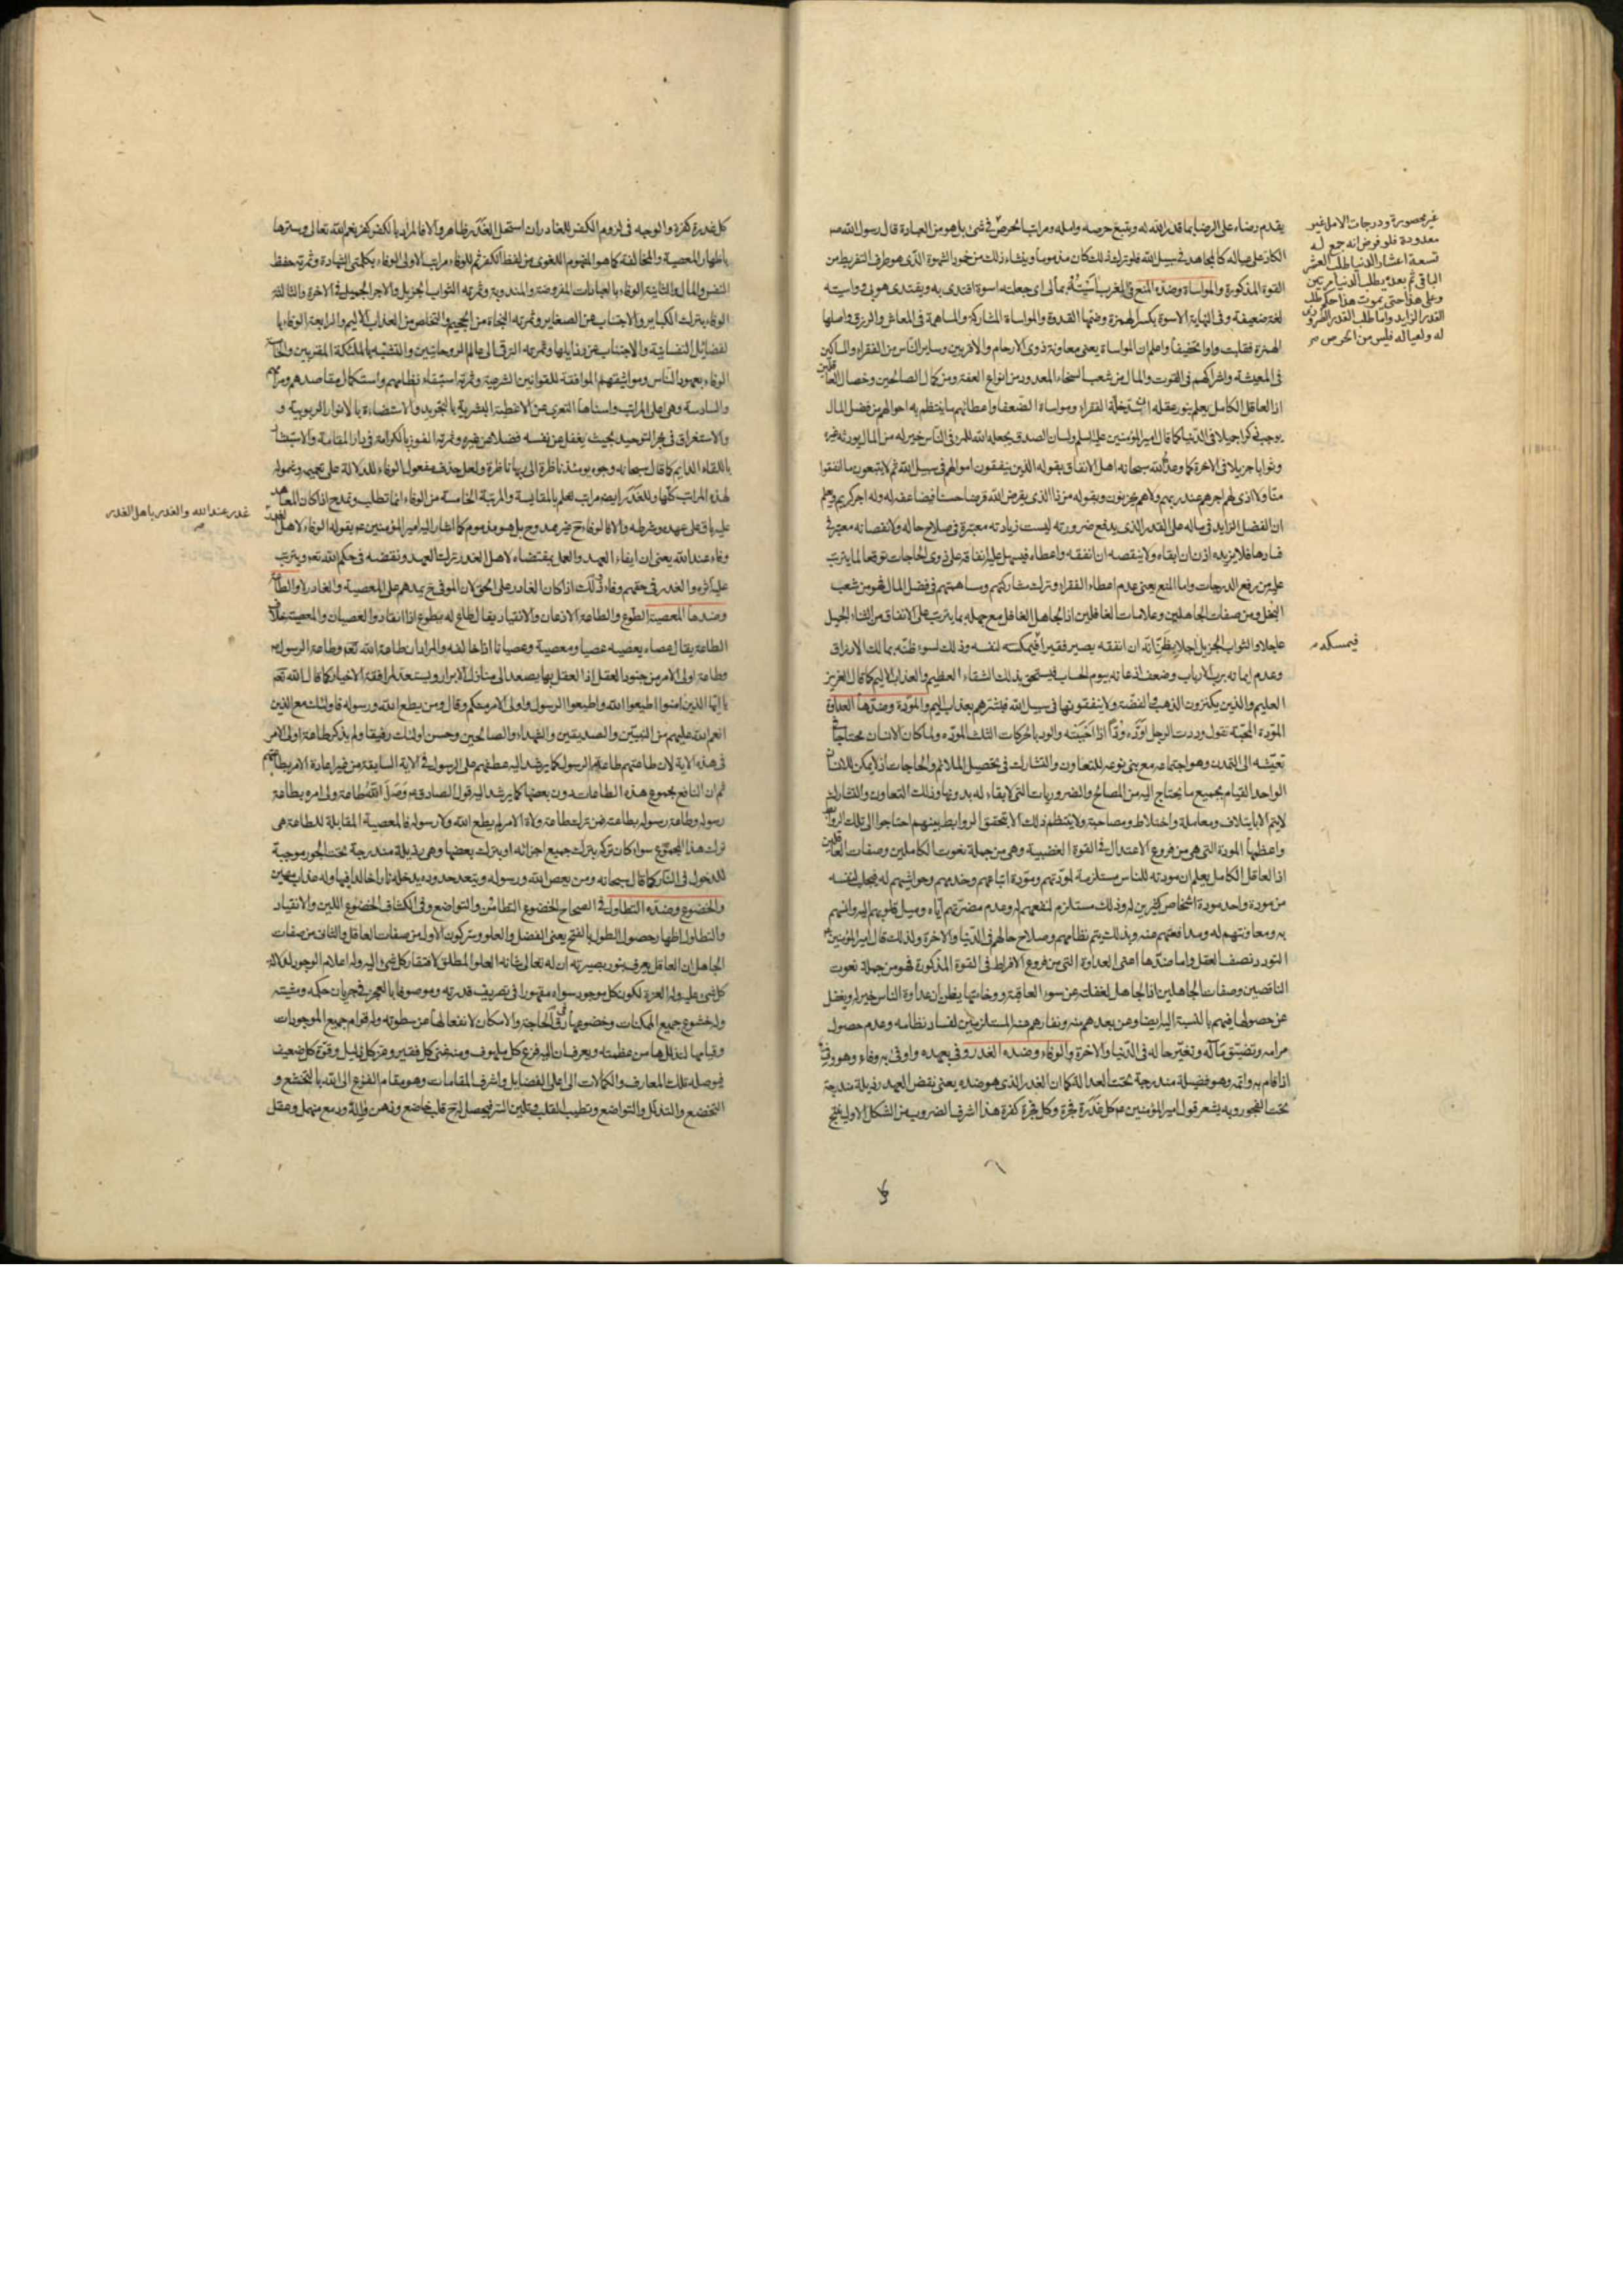 يقدم رضاء على الرضا بما قدر الله له ويتبع حرصه وامله ومراتب الحرص في شئ بل هو من العبادة قال رسول الله صـ
الكاد على عياله كالمجاهد في سبيل الله فلو ترك ذلك كان مذموما وينشاء ذلك من خمود الشهوة الذى هو طرف التفريط من
القوة المذكورة والمواساة وضده المنع في المغرب آسيته بمالى اى جعلته اسوة اقتدى به ويقتدى هو بى وواسيته
لغة ضعيفة وفى النهاية الاسوة بكسر الهمزة وضمها القدوة والمواساة المشاركة والمساهمة فى المعاش والرزق واصلها
الهمزة فقلبت واوا تخفيفا واعلم ان المواساة يعنى معاونة ذوى الارحام والاقربين وساير الناس من الفقراء والمساكين
فى المعيشة واشراكهم فى القوت والمال من شعب السخاء المعدود من انواع العفة ومن كمال الصالحين وخصال العاقلين
اذ العاقل الكامل يعلم بنور عقله ان سد خلة الفقراء ومواساة الضعفا واعطائهم ما ينتظم به احوالهم من فضل المال
يوجب ذكرا جميلا فى الدنيا كما قال امير المؤمنين عليه السلم ولسان الصدق يجعله الله للمرء فى الناس خير له من المال يورثه غيره
وثوابا جزيلا فى الاخرة كما وعد الله سبحانه اهل الانفاق بقوله الذين ينفقون اموالهم فى سبيل الله ثم لا يتبعون ما انفقوا
منّا ولا اذى لهم اجرهم عند ربهم ولا هم يحزنون وبقوله من ذا الذى يقرض الله قرضا حسنا فيضاعفه له وله اجر كريم ويعلم
ان الفضل الزايد فى ماله على القدر الذى يدفع ضرورته ليست زيادته معتبرة فى صلاح حاله ولا نقصانه معتبر فى
فساد حاله فلا يزيده اذن ان ابقاه ولا ينقصه ان انفقه واعطاه فيسهل عليه انفاقه على ذوى الحاجات توقعا لما يترتب
عليه من رفع الدرجات واما المنع يعنى عدم اعطاء الفقراء وترك مشاركتهم ومساهمتهم فى فضل المال فهو من شعب
البخل ومن صفات الجاهلين وعلامات الغافلين اذ الجاهل الغافل مع جهله بما يترتب على الانفاق من الثناء الجميل
عاجلا والثواب الجزيل اجلا يظن انه ان انفقه يصير فقيرا فيمكسه لنفسه وذلك لسوء ظنه بمالك الارزاق
وعدم ايمانه برب الارباب وضعف اذعانه بيوم الحساب فيستحق بذلك الشقاء العظيم والعذاب الاليم كما قال العزيز
العليم والذين يكنزون الذهب والفضة ولا ينفقونها فى سبيل الله فبشرهم بعذاب اليم والمودة وضدها العداوة
المودة المحبة تقول وددت الرجل اوده ودّا اذا احببته والود بالحركات الثلث المودة ولما كان الانسان محتاجا فى
تعيشه الى التمدن وهو اجتماعه مع بنى نوعه للتعاون والتشارك فى تحصيل الملائم والحاجات اذ لا يمكن للانسان
الواحد القيام بجميع ما يحتاج اليه من المصالح والضروريات التى لا بقاء له بدونها وذلك التعاون والتشارك
لا يتم الا بايتلاف ومعاملة واختلاط ومصاحبة ولا ينتظم ذلك الا بتحقق الروابط بينهم احتاجوا الى تلك الروابط
واعظمها المودة التى هى من فروع الاعتدال فى القوة الغضبية وهى من جملة نعوت الكاملين وصفات العاقلين
اذ العاقل الكامل يعلم ان مودته للناس مستلزمة لمودتهم ومودة اتباعهم وخدمهم وحواشيهم له فيجلب لنفسه
من مودة واحد مودة اشخاص كثيرين له وذلك مستلزم لنفعهم له وعدم مضرتهم اياه وميل قلوبهم اليه وانسهم
به ومعاونتهم له ومدافعتهم عنه وبذلك يتم نظامهم وصلاح حالهم فى الدنيا والاخرة ولذلك قال امير المؤمنين ع
التودد نصف العقل واما ضدها اعنى العداوة التى من فروع الافراط فى القوة المذكورة فهو من جملة نعوت
الناقصين وصفات الجاهلين اذ الجاهل لغفلته عن سوء العاقبة ووخامتها يظن ان عداوة الناس خير له ويغفل
عن حصولها فيهم بالنسبة اليه ايضا وعن بعدهم منه ونفارهم عنه المستلزمين لفساد نظامه وعدم حصول
مرامه وتضيق مآله وتغير حاله فى الدنيا والاخرة والوفاء وضده الغدر وفى بعهده واوفى به وفاء وهو وفى
اذا قام به واتمه وهو فضيلة مندرجة تحت العدالة كما ان الغدر الذى هو ضده يعنى نقض العهد رذيلة مندرجة
تحت الفجور وبه يشعر قول امير المؤمنين ع كل غدرة فجرة وكل فجرة كفرة هذا اشرف الضروب من الشكل الاول ينتج
غير محصورة ودرجات الامل غير
معدودة فلو فرض انه جمع له
تسعة اعشار الدنيا طلب العشر
الباقى ثم بعده يطلب الدنيا مرتين
وعلى هذا حتى يموت هذا حكم طلب
القدر الزايد واما طلب القدر الضرورى
له ولعياله فليس من الحرص صح
فيمسكه
كل غدرة كفرة والوجه فى لزوم الكفر للغادر ان استحل الغدر ظاهر والا فالمراد بالكفر كفر نعم الله تعالى وسترها
باظهار المعصية والمخالفة كما هو المفهوم اللغوى من لفظ الكفر ثم للوفاء مراتب الاولى الوفاء بكلمتى الشهادة وثمرته حفظ
النفس والمال والثانية الوفاء بالعبادات المفروضة والمندوبة وثمرته الثواب الجزيل والاجر الجميل فى الاخرة والثالثة
الوفاء بترك الكباير والاجتناب عن الصغاير وثمرته النجاة من الجحيم والتخلص من العذاب الاليم والرابعة الوفاء با
لفضائل النفسانية والاجتناب عن رذايلها وثمرته الترقى الى عالم الروحانيين والتشبه بالملئكة المقربين والخامسة
الوفاء بعهود الناس ومواثيقهم الموافقة للقوانين الشرعية وثمرته استبقاء نظامهم واستكمال مقاصدهم ومرامهم
والسادسة وهى اعلى المراتب واسناها التعرى عن الاغطية البشرية بالتجريد والاستضاءة بالانوار الربوبية و
والاستغراق فى بحر التوحيد بحيث يغفل عن نفسه فضلا عن غيره وثمرته الفوز بالكرامة فى دار المقامة والاستبشار
باللقاء الدايم كما قال سبحانه وجوه يومئذ ناظرة الى ربها ناظرة ولعل حذف مفعول الوفاء للدلالة على تعميمه وشموله
لهذه المراتب كلها وللغدر ايضا مراتب تعلم بالمقايسة والمرتبة الخامسة من الوفاء انما تطلب وتمدح اذا كان المعاهد
عليه باق على عهده وشرطه والا فالوفاء ح غير ممدوح بل هو مذموم كما اشار اليه امير المؤمنين ع بقوله الوفاء لاهل الغدر
وفاء عند الله يعنى ان ايفاء العهد والعمل بمقتضاه لاهل الغدر ترك العهد ونقضه فى حكم الله تعه ويترتب
عليه اثره والغدر فى حقهم وفاء وذلك اذا كان الغادر على الحق لان الموفى ح يمدهم على المعصية والغادر لا والطاعة
وضدها المعصية الطوع والطاعة الاذعان والانقياد يقال طاع له يطوع اذا انقاد والعصيان والمعصية خلاف
الطاعة يقال عصاه يعصيه عصيا ومعصية وعصيانا اذا خالفه والمراد ان طاعة الله تعه وطاعة الرسول ص
وطاعة اولى الامر من جنود العقل اذ العقل بها يصعد الى منازل الابرار ويستعد لمرافقة الاخيار كما قال الله تعه
يا ايها الذين امنوا اطيعوا الله واطيعوا الرسول واولى الامر منكم وقال ومن يطع الله ورسوله فاولئك مع الذين
انعم الله عليهم من النبيين والصديقين والشهداء والصالحين وحسن اولئك رفيقا ولم يذكر طاعة اولى الامر
فى هذه الاية لان طاعتهم طاعة الرسول كما يرشد اليه عطفهم على الرسول فى الاية السابقة من غير اعادة الامر بطاعتهم
ثم ان النافع مجموع هذه الطاعات دون بعضها كما يرشد اليه قول الصادق ع وصل الله طاعة ولى امره بطاعة
رسوله وطاعة رسوله بطاعته فمن ترك طاعة ولاة الامر لم يطع الله ولا رسوله فالمعصية المقابلة للطاعة هى
ترك هذا المجموع سواء كان تركه بترك جميع اجزائه او بترك بعضها وهى رذيلة مندرجة تحت الجور موجبة
للدخول فى النار كما قال سبحانه ومن يعص الله ورسوله ويتعد حدوده يدخله نارا خالدا فيها وله عذاب مهين
والخضوع وضده التطاول فى الصحاح الخضوع التطامن والتواضع وفى الكشاف الخضوع اللين والانقياد
والتطاول اظهار حصول الطول بالفتح يعنى الفضل والعلو وترك كون الاول من صفات العاقل والثانى من صفات
الجاهل ان العاقل يعرف بنور بصيرته ان له تعالى شانه العلو المطلق لافتقار كل شئ اليه وله اعلام الوجود لدلالة
كل شئ عليه وله العزة لكون كل موجود سواه مقهورا فى تصريف قدرته وموصوفا بالعجز فى جريان حكمه ومشيته
وله خشوع جميع الممكنات وخضوعها فى رق الحاجة والامكان لانفعالها عن سطوته وله قوام جميع الموجودات
وقيامها لتذللها من عظمته ويعرف ان اليه مفزع كل ملهوف ومنه غنى كل فقير وعز كل ذليل وقوة كل ضعيف
فيوصله تلك المعارف والكمالات الى اعلى الفضايل واشرف المقامات وهو مقام الفزع الى الله بالتخشع و
التخضع والتذلل والتواضع وتطييب القلب وتليين السر فيحصل له ح قلب خاضع وذهن واله ودمع منهمل وعقل
غدر عند الله والغدر باهل الغدر
صح